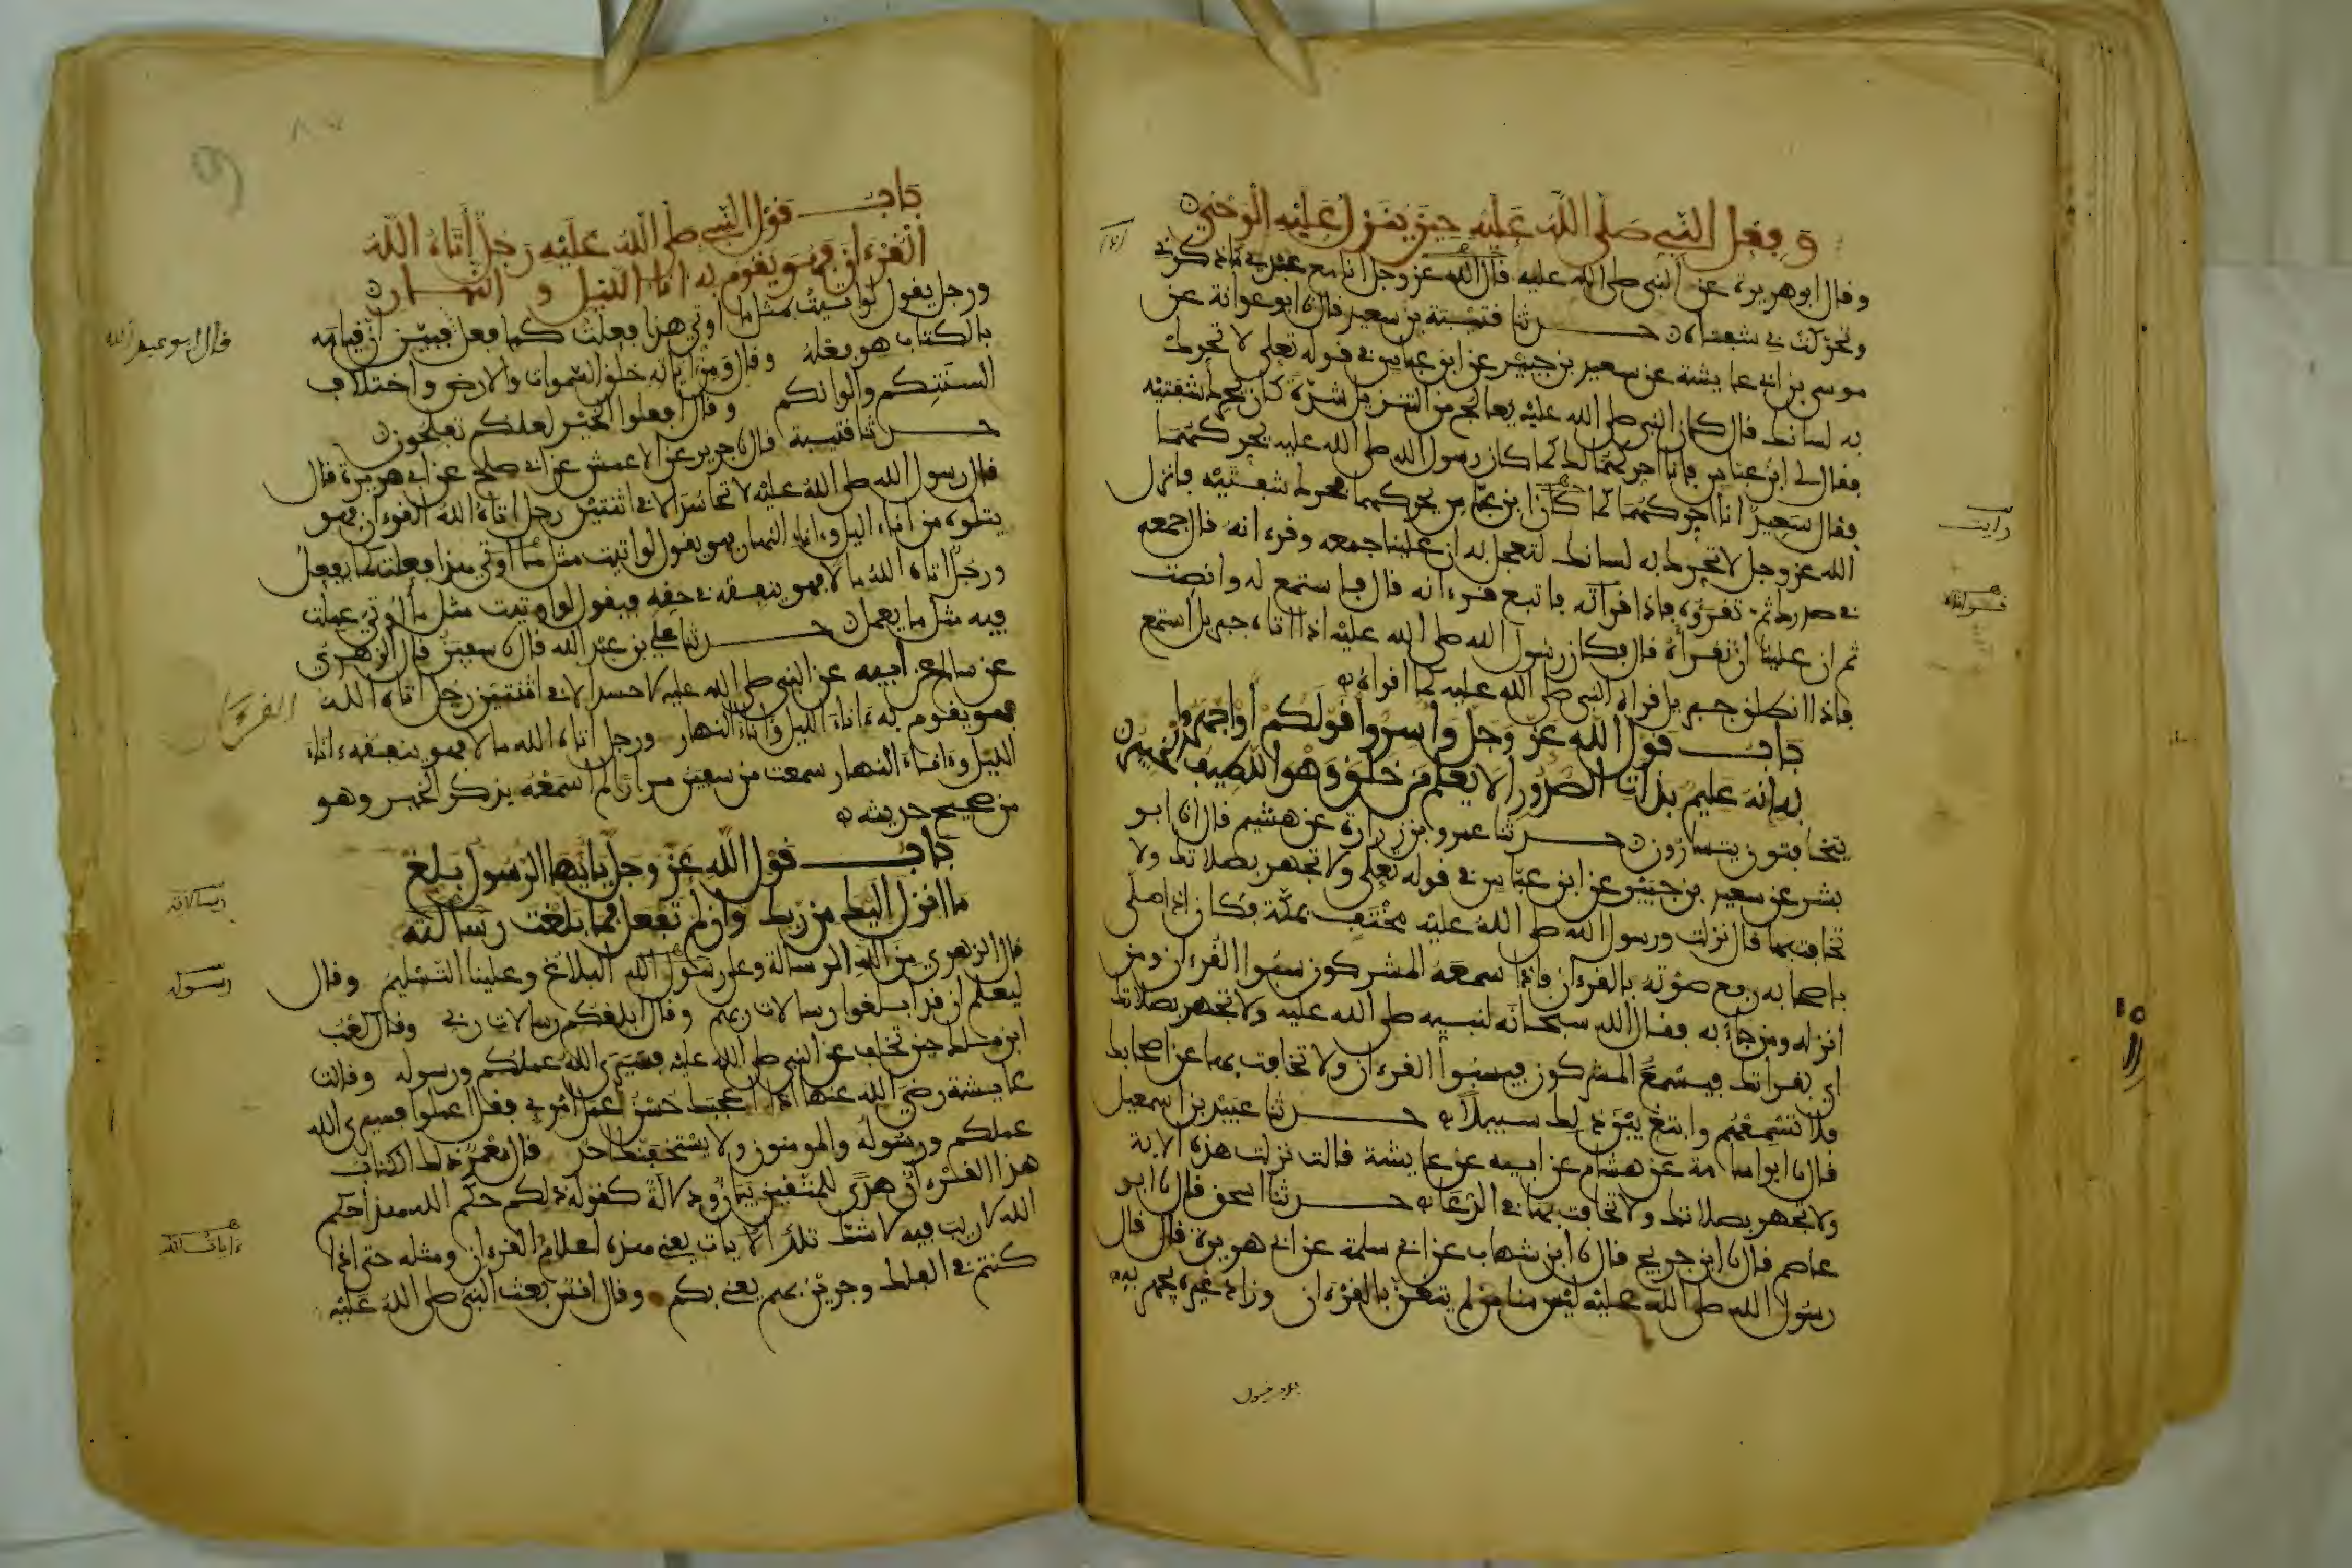 وفعل النبي صلى الله عليه حين ينزل عليه الوحي
وقال ابو هريرة عن النبي صلى الله عليه قال الله عز وجل انا مع عبدي ما ذكرني
وتحركت بي شفتاه حدثنا قتيبة بن سعيد قال نا ابو عوانة عن
موسى بن ابي عايشة عن سعيد بن جبير عن ابن عباس في قوله تعلى لا تحرك
به لسانك قال كان النبي صلى الله عليه يعالج من التنزيل شدة كان يحرك شفتيه
فقال لي ابن عباس فانا احركهما لك كما كان رسول الله صلى الله عليه يحركهما
فقال سعيد انا احركهما كما كان ابن عباس يحركهما فحرك شفتيه فانزل
الله عز وجل لا تحرك به لسانك لتعجل به ان علينا جمعه وقرءانه قال جمعه
في صدرك ثم تقرؤه فاذا قرأناه فاتبع قرءانه قال فاستمع له وانصت
ثم ان علينا ان تقرأه قال فكان رسول الله صلى الله عليه اذا اتاه جبريل استمع
فاذا انطلق جبريل قراه النبي صلى الله عليه كما اقراه
باب قول الله عز وجل وأسروا قولكم أو اجهروا
به إنه عليم بذات الصدور ألا يعلم من خلق وهو اللطيف الخبير
يتخافتون يتسارون حدثنا عمرو بن زرارة عن هشيم قال انا ابو
بشر عن سعيد بن جبير عن ابن عباس في قوله تعلى ولا تجهر بصلاتك ولا
تخافت بها قال نزلت ورسول الله صلى الله عليه مختف بمكة فكان اذا صلى
باصحابه رفع صوته بالقرءان فاذا سمعه المشركون سبوا القرءان ومن
انزله ومن جاء به فقال الله سبحانه لنبيه صلى الله عليه ولا تجهر بصلاتك
اي بقراتك فيسمع المشركون فيسبوا القرءان ولا تخافت بها عن اصحابك
فلا تسمعهم وابتغ بين ذلك سبيلا حدثنا عبيد بن اسمعيل
قال نا ابو اسامة عن هشام عن ابيه عن عايشة قالت نزلت هذه الاية
ولا تجهر بصلاتك ولا تخافت بها في الدعاء حدثنا اسحق قال نا ابو
عاصم قال نا ابن جريج قال نا ابن شهاب عن ابي سلمة عن ابي هريرة قال قال
رسول الله صلى الله عليه ليس منا من لم يتغن بالقرءان وزاد غيره يجهر به
رايت
باب قول النبي صلى الله عليه رجل اتاه الله
القرءان فهو يقوم به انا الليل و النهار
ورجل يقول لو اتيت بمثل ما اوتي هذا فعلت كما يفعل فبين ان قيامه
بالكتاب هو فعله وقال ومن اياته خلق السموات والارض واختلاف
السنتكم والوانكم وقال افعلوا الخير لعلكم تفلحون
حدثنا قتيبة قال نا جرير عن الاعمش عن ابي صلح عن ابي هريرة قال
قال رسول الله صلى الله عليه لا تحاسد الا في اثنتين رجل اتاه الله القرءان فهو
يتلوه من اناء اليل وءاناء النهار فهو يقول لو اتيت مثل ما اوتي هذا فعلت كما يفعل
ورجل اتاه الله مالا فهو ينفقه في حقه فيقول لو اوتيت مثل ما اوتي عملت
فيه مثل ما يعمل حدثنا علي بن عبد الله قال نا سفين قال الزهري
عن سالم عن ابيه عن النبي صلى الله عليه لا حسد الا في اثنتين رجل اتاه الله
فهو يقوم به ءاناء الليل وءاناء النهار ورجل اتاه الله مالا فهو ينفقه ءاناء
الليل وءاناء النهار سمعت من سفين مرارا لم اسمعه يذكر الخبر وهو
من صحيح حديثه
باب قول الله عز وجل يايها الرسول بلغ
ما انزل اليك من ربك وان لم تفعل فما بلغت رسالته
قال الزهري من الله الرسالة وعلى رسول الله البلاغ وعلينا التسليم وقال
ليعلم ان قد ابلغوا رسالات ربهم وقال ابلغكم رسالات ربي وقال كعب
ابن ملك حين تخلف عن النبي صلى الله عليه فسيرى الله عملكم ورسوله وقالت
عايشة رضي الله عنها اذا اعجبك حسن عمل امرئ فقل اعملوا فسيرى الله
عملكم ورسوله والمومنون ولا يستخفنك احد قال معمر ذلك الكتاب
هذا القرءان هدى للمتقين بيان ودلالة كقوله ذلكم حكم الله هذا حكم
الله لا ريب فيه لا شك تلك الايات يعني هذه اعلام القرءان ومثله حتى اذا
كنتم في الفلك وجرين بهم يعني بكم وقال انس بعث النبي صلى الله عليه
قال ابو عبد الله
القرءان
رسالاته
رسوله